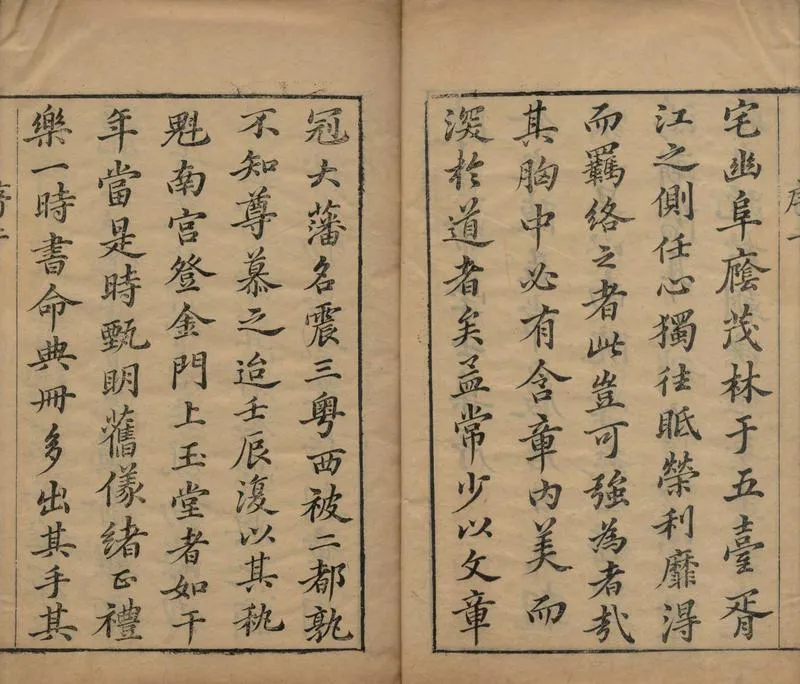 宅幽阜廕茂林于五臺胥
江之側任心獨往眂榮利靡得
而羈絡之者此豈可強為者哉
其胸中必有含章內美而
深於道者矣孟常少以文章
冠大藩名震三粵西被二都孰
不知尊慕之迨壬辰復以其秇
魁南宮登金門上玉堂者如干
年當是時甄明舊儀緒正禮
樂一時書命典冊多出其手其